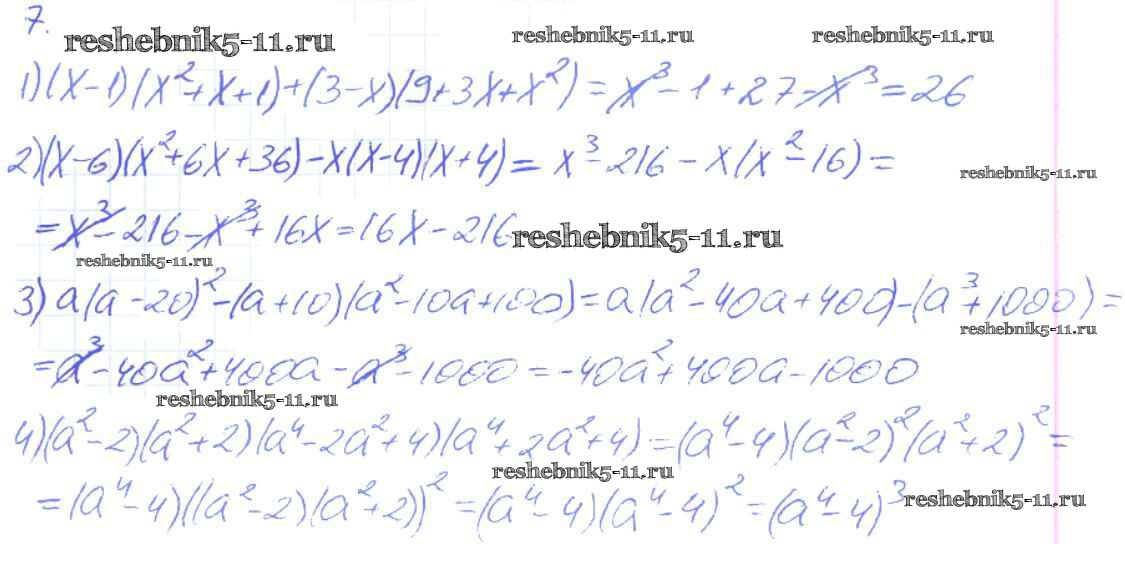 7.
reshebnik5-11.ru reshebnik5-11.ru reshebnik5-11.ru
1) (x-1)(x²+x+1)+(3-x)(9+3x+x²)=x³-1+27-x³=26
2) (x-6)(x²+6x+36)-x(x-4)(x+4)=x³-216-x(x²-16)=
reshebnik5-11.ru
=x³-216-x³+16x=16x-216
reshebnik5-11.ru
reshebnik5-11.ru
3) a(a-20)²-(a+10)(a²-10a+100)=a(a²-40a+400)-(a³+1000)=
reshebnik5-11.ru
=a³-40a²+400a-a³-1000=-40a²+400a-1000
reshebnik5-11.ru
4) (a²-2)(a²+2)(a⁴-2a²+4)(a⁴+2a²+4)=(a⁴-4)(a²-2)²(a²+2)²=
reshebnik5-11.ru
=(a⁴-4)((a²-2)(a²+2))²=(a⁴-4)(a⁴-4)²=(a⁴-4)³
reshebnik5-11.ru